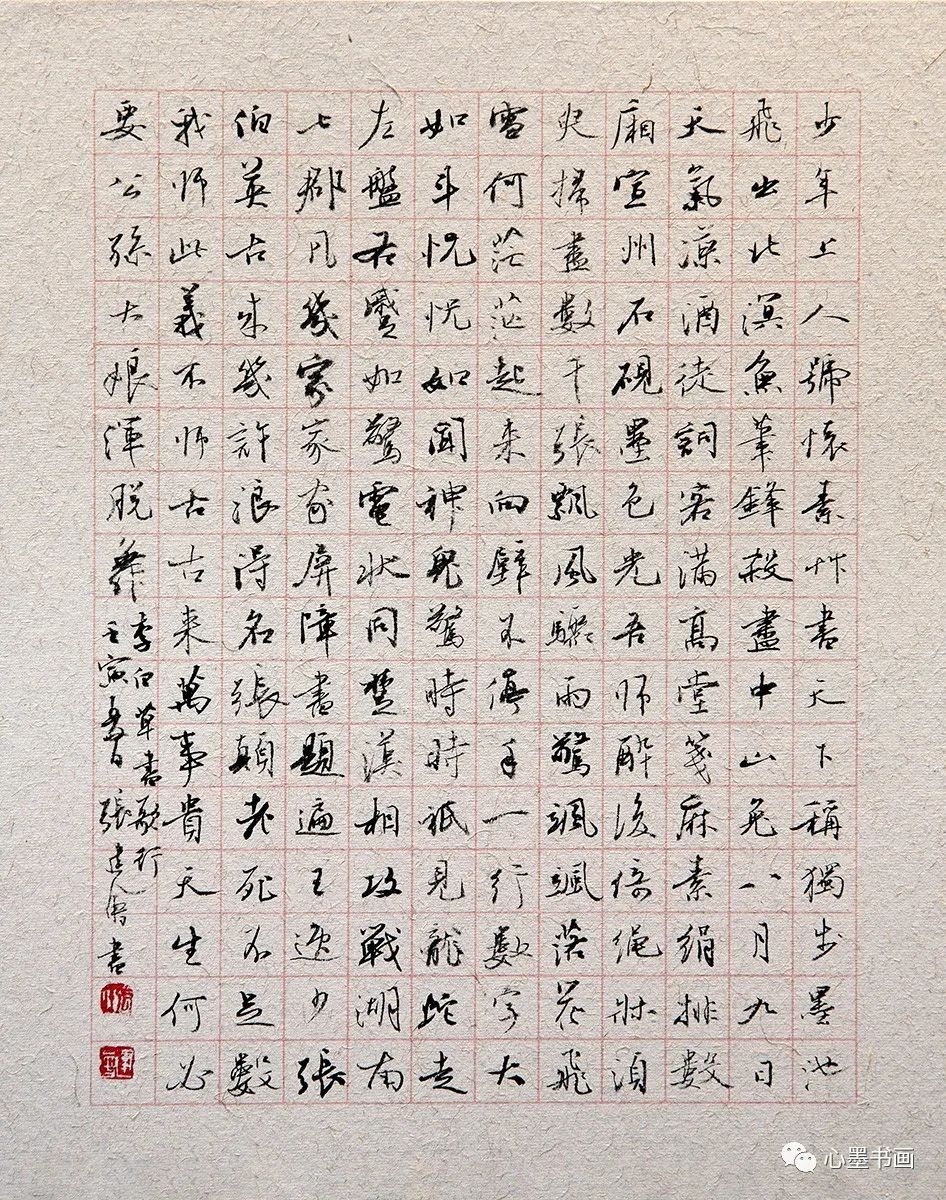 少年上人號懷素艸書天下稱獨步墨池
飛出北溟魚筆鋒殺盡中山兔八月九日
天氣涼酒徒詞客滿高堂箋麻素絹排數
廂宣州石硯墨色光吾師醉後倚繩牀須
臾掃盡數千張飄風驟雨驚颯颯落花飛
雪何茫茫起来向壁不停手一行數字大
如斗怳怳如聞神鬼驚時時祇見龍蛇走
左盤右蹙如驚電狀同楚漢相攻戰湖南
七郡凡幾家家家屏障書題遍王逸少張
伯英古來幾許浪得名張顛老死不足數
我師此義不師古古来萬事貴天生何必
要公孫大娘渾脫舞
李白草書歌行
壬寅春日張書
心墨书画